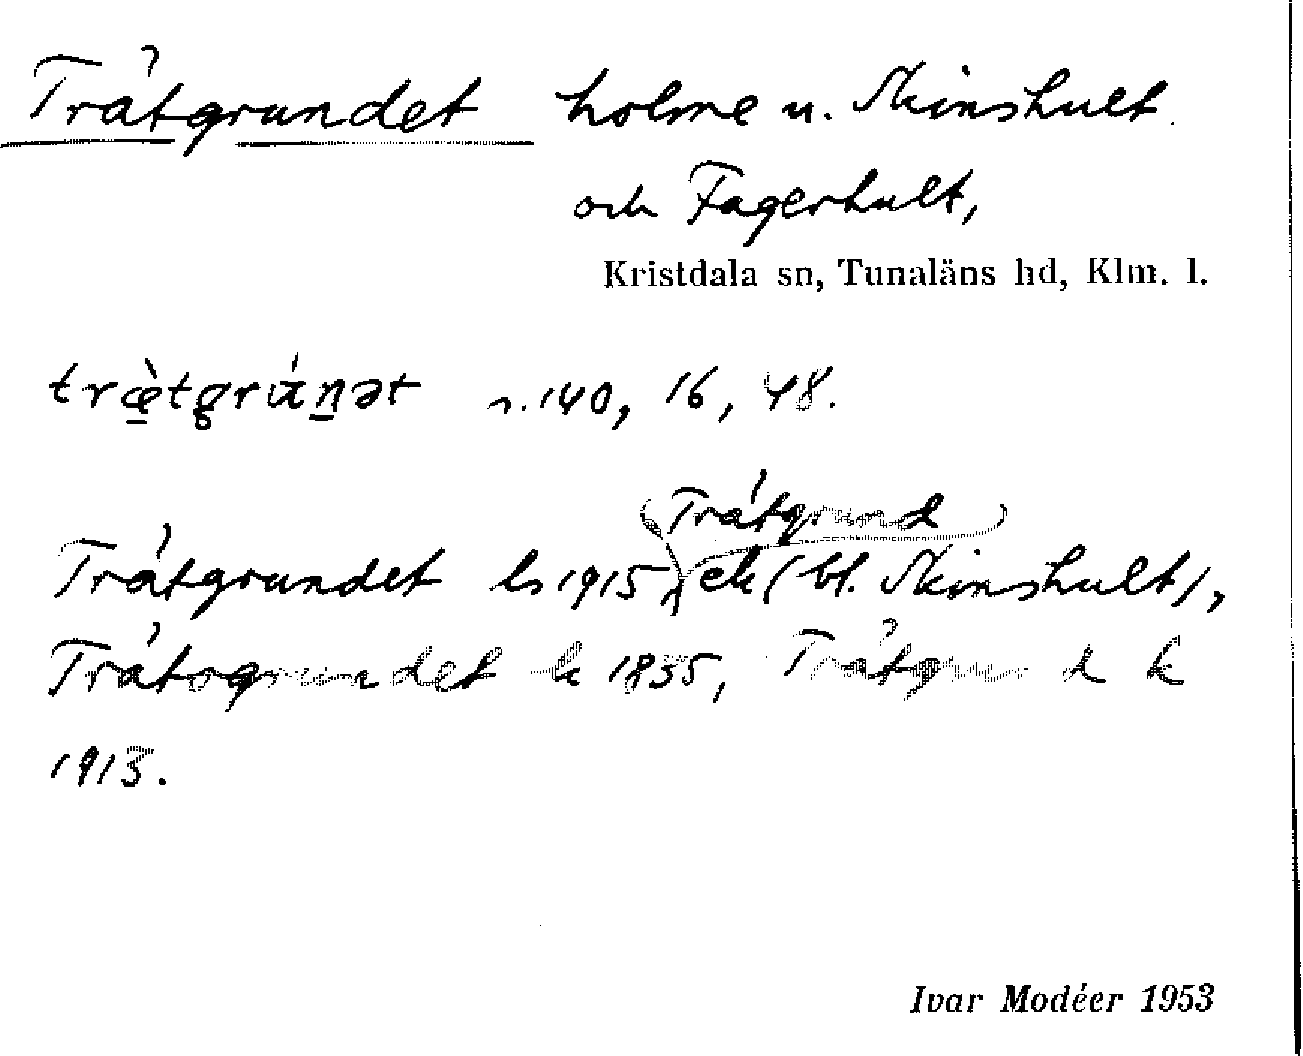 Tråtgrundet holme u. Skinshult
och Fagerhult,
Kristdala sn, Tunaläns hd, Klm. l.
træ̀tgrún̠ət s. 140, 16, 48.
(Tråtgrund)
Tråtgrundet ls 1915, ek (bl. Skinshult),
Tråtogrundet k 1835, Tråtgrund k
1913.
Ivar Modéer 1953